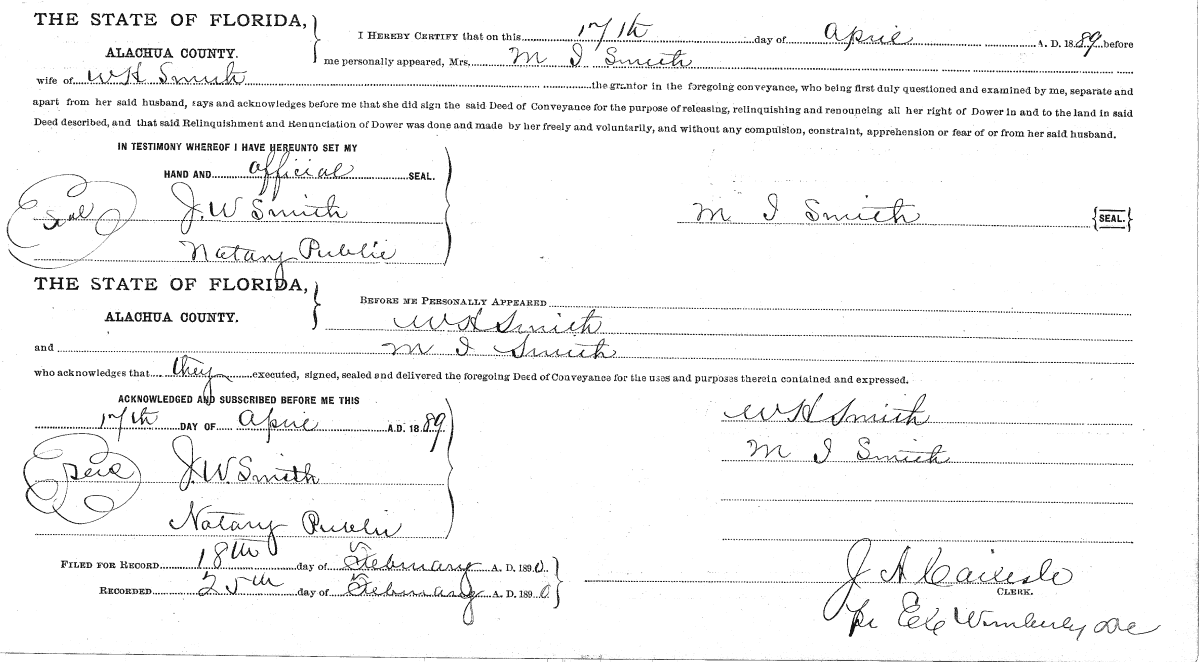 THE STATE OF FLORIDA,
ALACHUA COUNTY.
I HEREBY CERTIFY that on this 17th day of April A. D. 1889 before
me personally appeared, Mrs. M I Smith
wife of W H Smith the grantor in the foregoing conveyance, who being first duly questioned and examined by me, separate and
apart from her said husband, says and acknowledges before me that she did sign the said Deed of Conveyance for the purpose of releasing, relinquishing and renouncing all her right of Dower in and to the land in said
Deed described, and that said Relinquishment and Renunciation of Dower was done and made by her freely and voluntarily, and without any compulsion, constraint, apprehension or fear of or from her said husband.
IN TESTIMONY WHEREOF I HAVE HEREUNTO SET MY
HAND AND official SEAL.
Seal J. W Smith
Notary Public
M I Smith {SEAL.}
THE STATE OF FLORIDA,
ALACHUA COUNTY.
BEFORE ME PERSONALLY APPEARED
W H Smith
and M I Smith
who acknowledges that they executed, signed, sealed and delivered the foregoing Deed of Conveyance for the uses and purposes therein contained and expressed.
ACKNOWLEDGED AND SUBSCRIBED BEFORE ME THIS
17th DAY OF April A.D. 1889
Seal J. W. Smith
Notary Public
W H Smith
M I Smith
FILED FOR RECORD 18th day of February A. D. 1890
RECORDED 25th day of February A. D. 1890
J A Carlisle
CLERK.
pr Wimberly DC